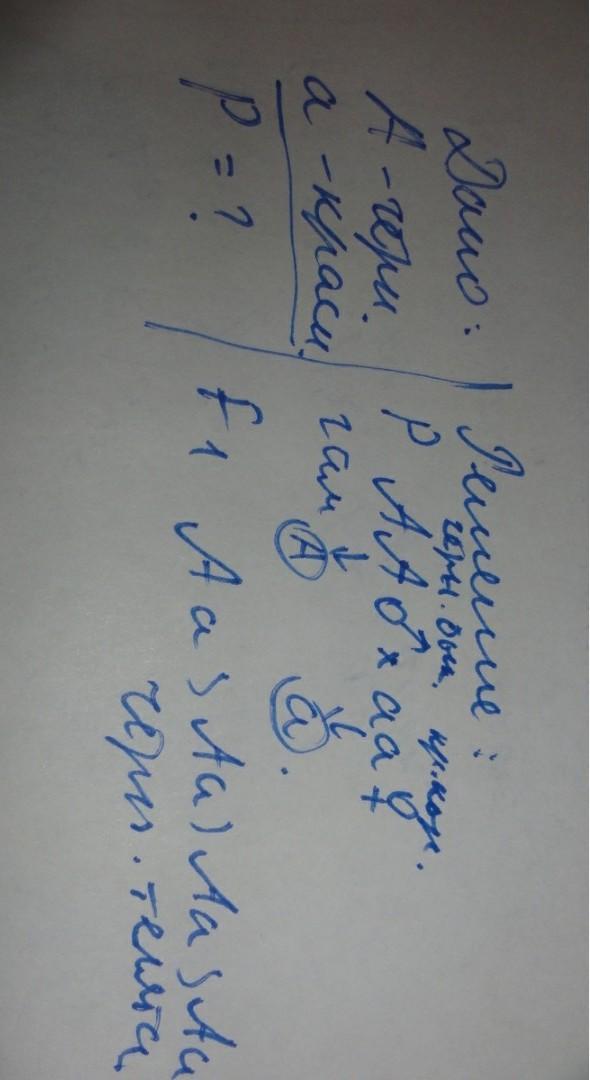 Дано:
А - черн.
а - красн.
P = ?
Решение:
черн. бык. кр. кор.
P АА ♂ х аа ♀
гам ↓ ↓
А а.
F1 Аа, Аа, Аа, Аа
черн. телята